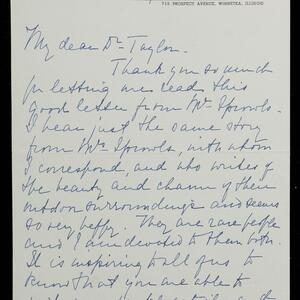 715 PROSPECT AVENUE, WINNETKA, ILLINOIS
My dear Dr Taylor.
Thank you so much
for letting me read this
good letter from Mr Sprowls.
I hear just the same story
from Mrs Sprowls, with whom
I correspond, and who writes of
the beauty and charm of their
outdoor surroundings and seems
so very happy. They are rare people
and I am devoted to them both.
It is inspiring to all of us to
know that you are able to